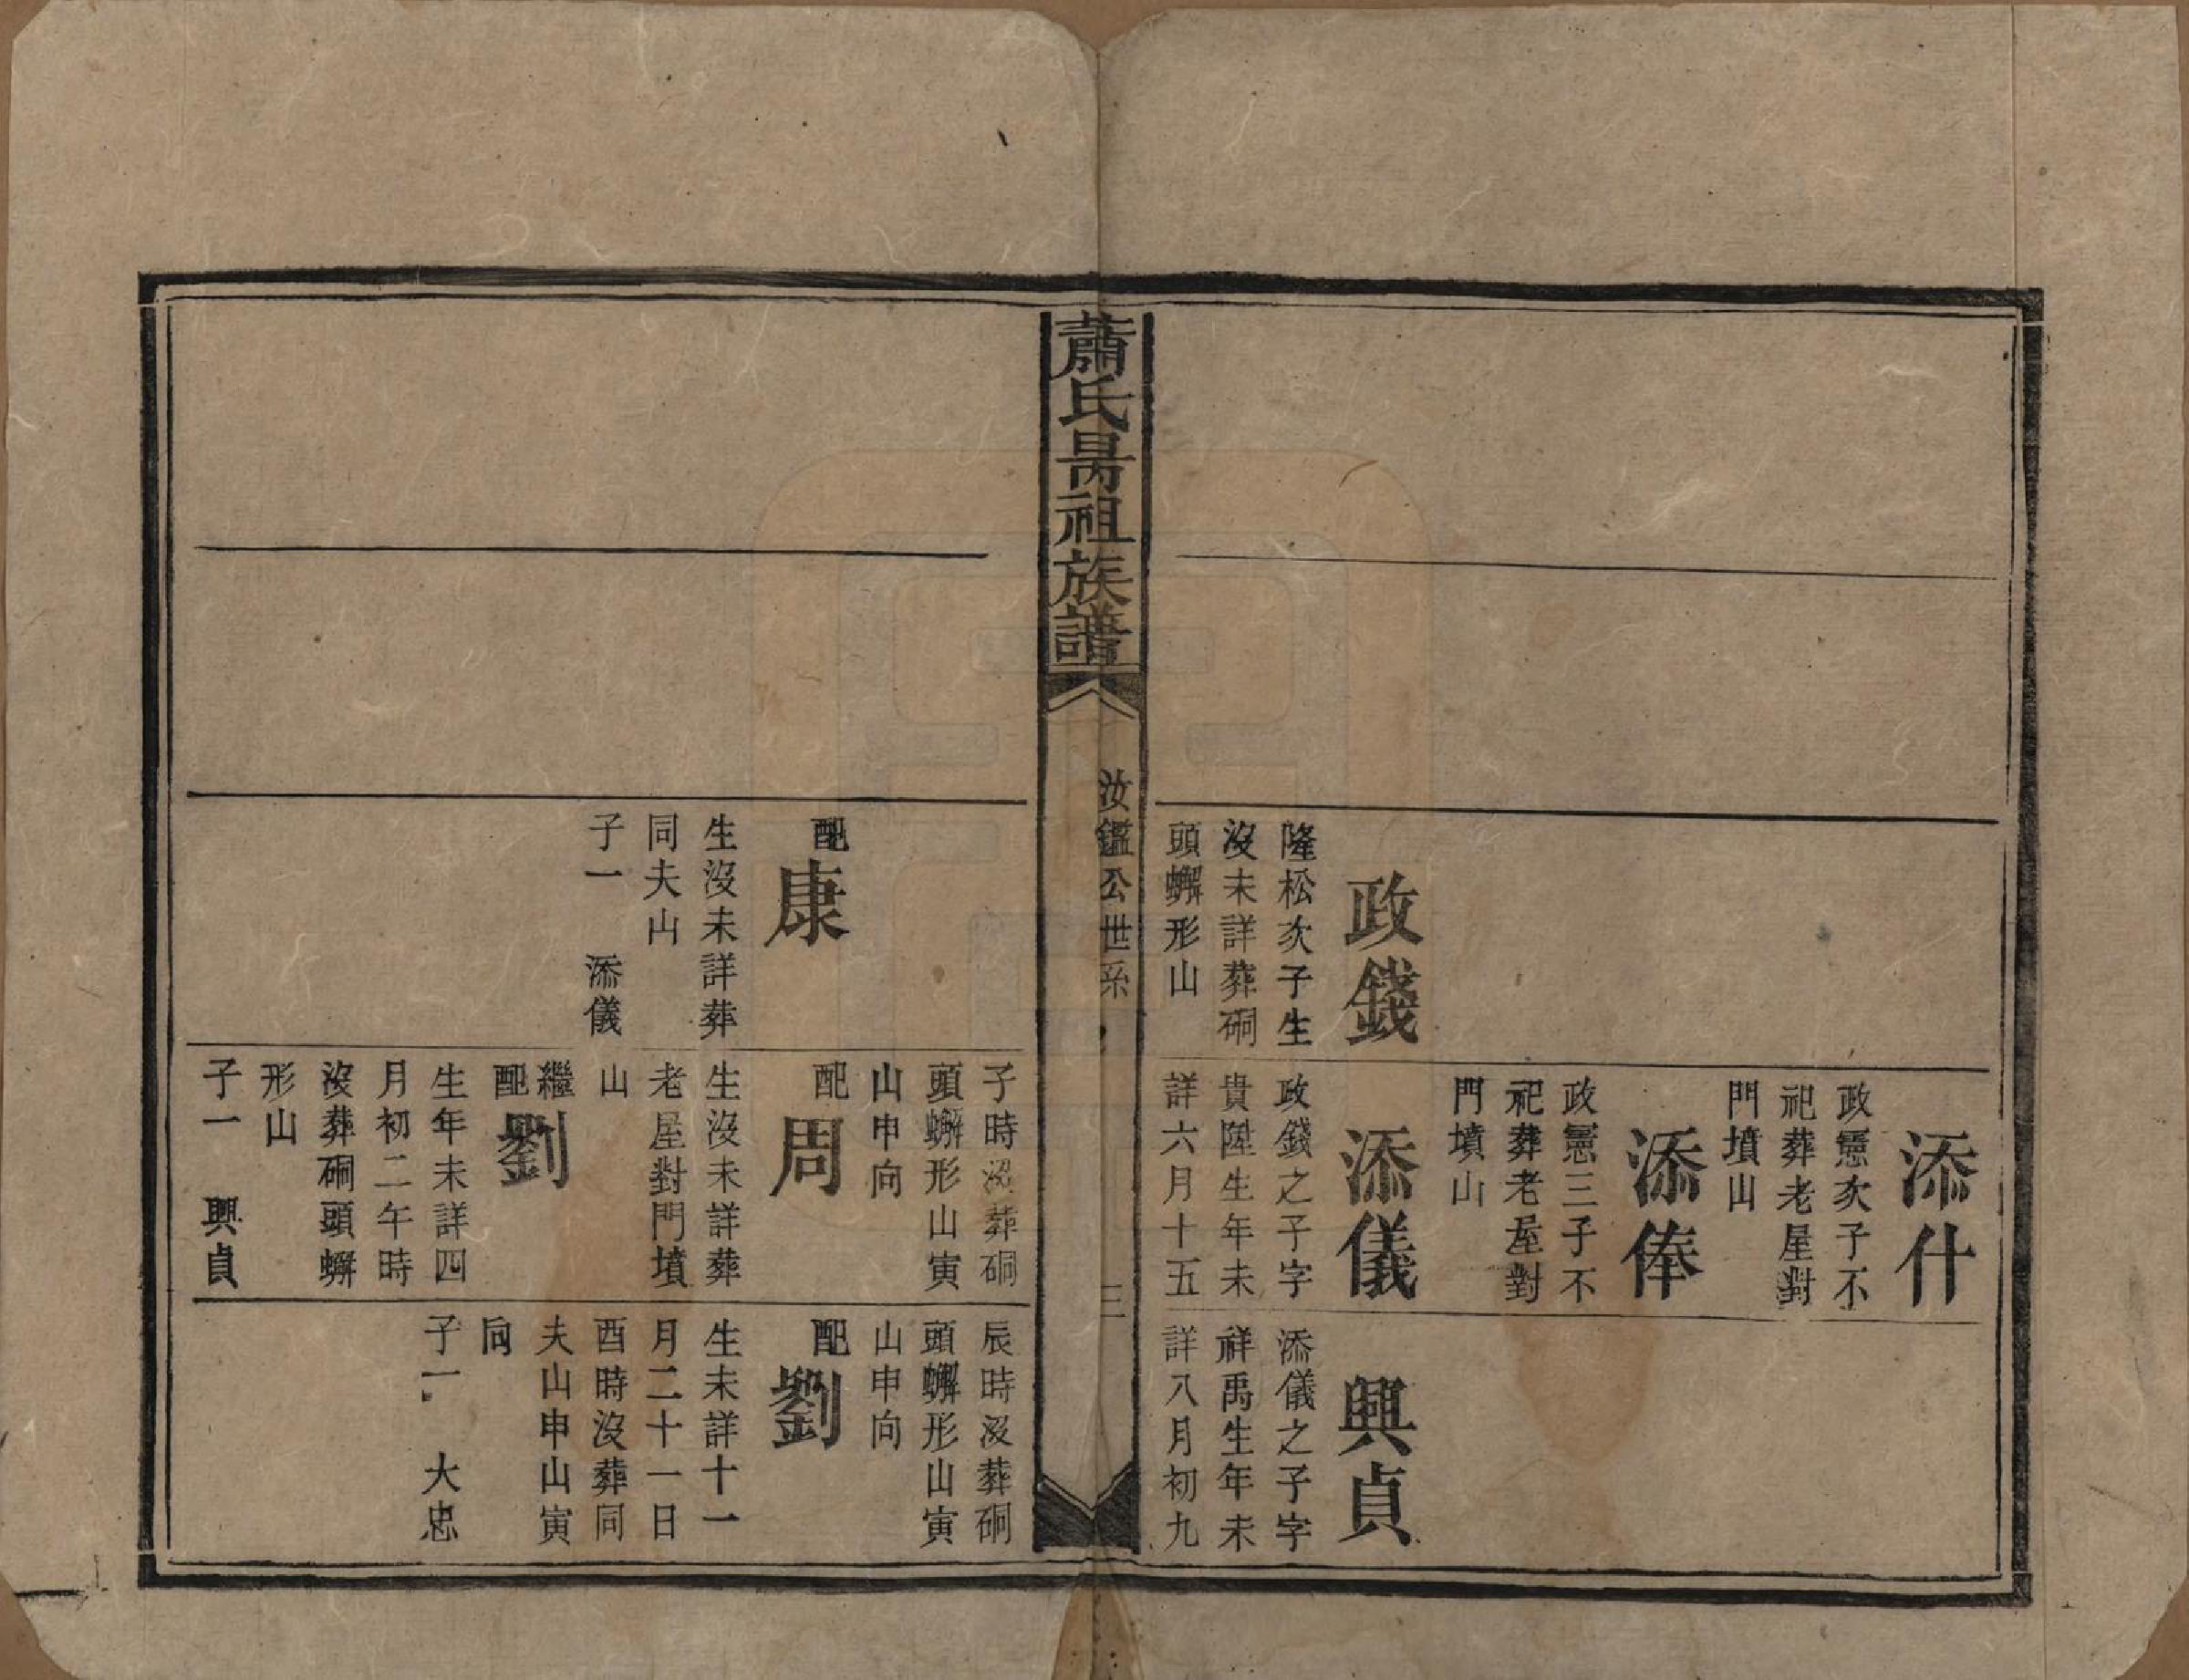 政錢
隆松次子生
沒未詳葬硐
頭蠏形山
添什
政憲次子不
祀葬老屋對
門墳山
添俸
政憲三子不
祀葬老屋對
門墳山
添儀
政錢之子字
貴陞生年未
詳六月十五
興貞
添儀之子字
祥禹生年未
詳八月初九
蕭氏昜祖族譜
汝鑑公世系
三
配康
生沒未詳葬
同夫山
子一　添儀
子時沒葬硐
頭蠏形山寅
山申向
配周
生沒未詳葬
老屋對門墳
山
繼配劉
生年未詳四
月初二午時
沒葬硐頭蠏
形山
子一　興貞
辰時沒葬硐
頭蠏形山寅
山申向
配劉
生未詳十一
月二十一日
酉時沒葬同
夫山申山寅
向
子一　大忠